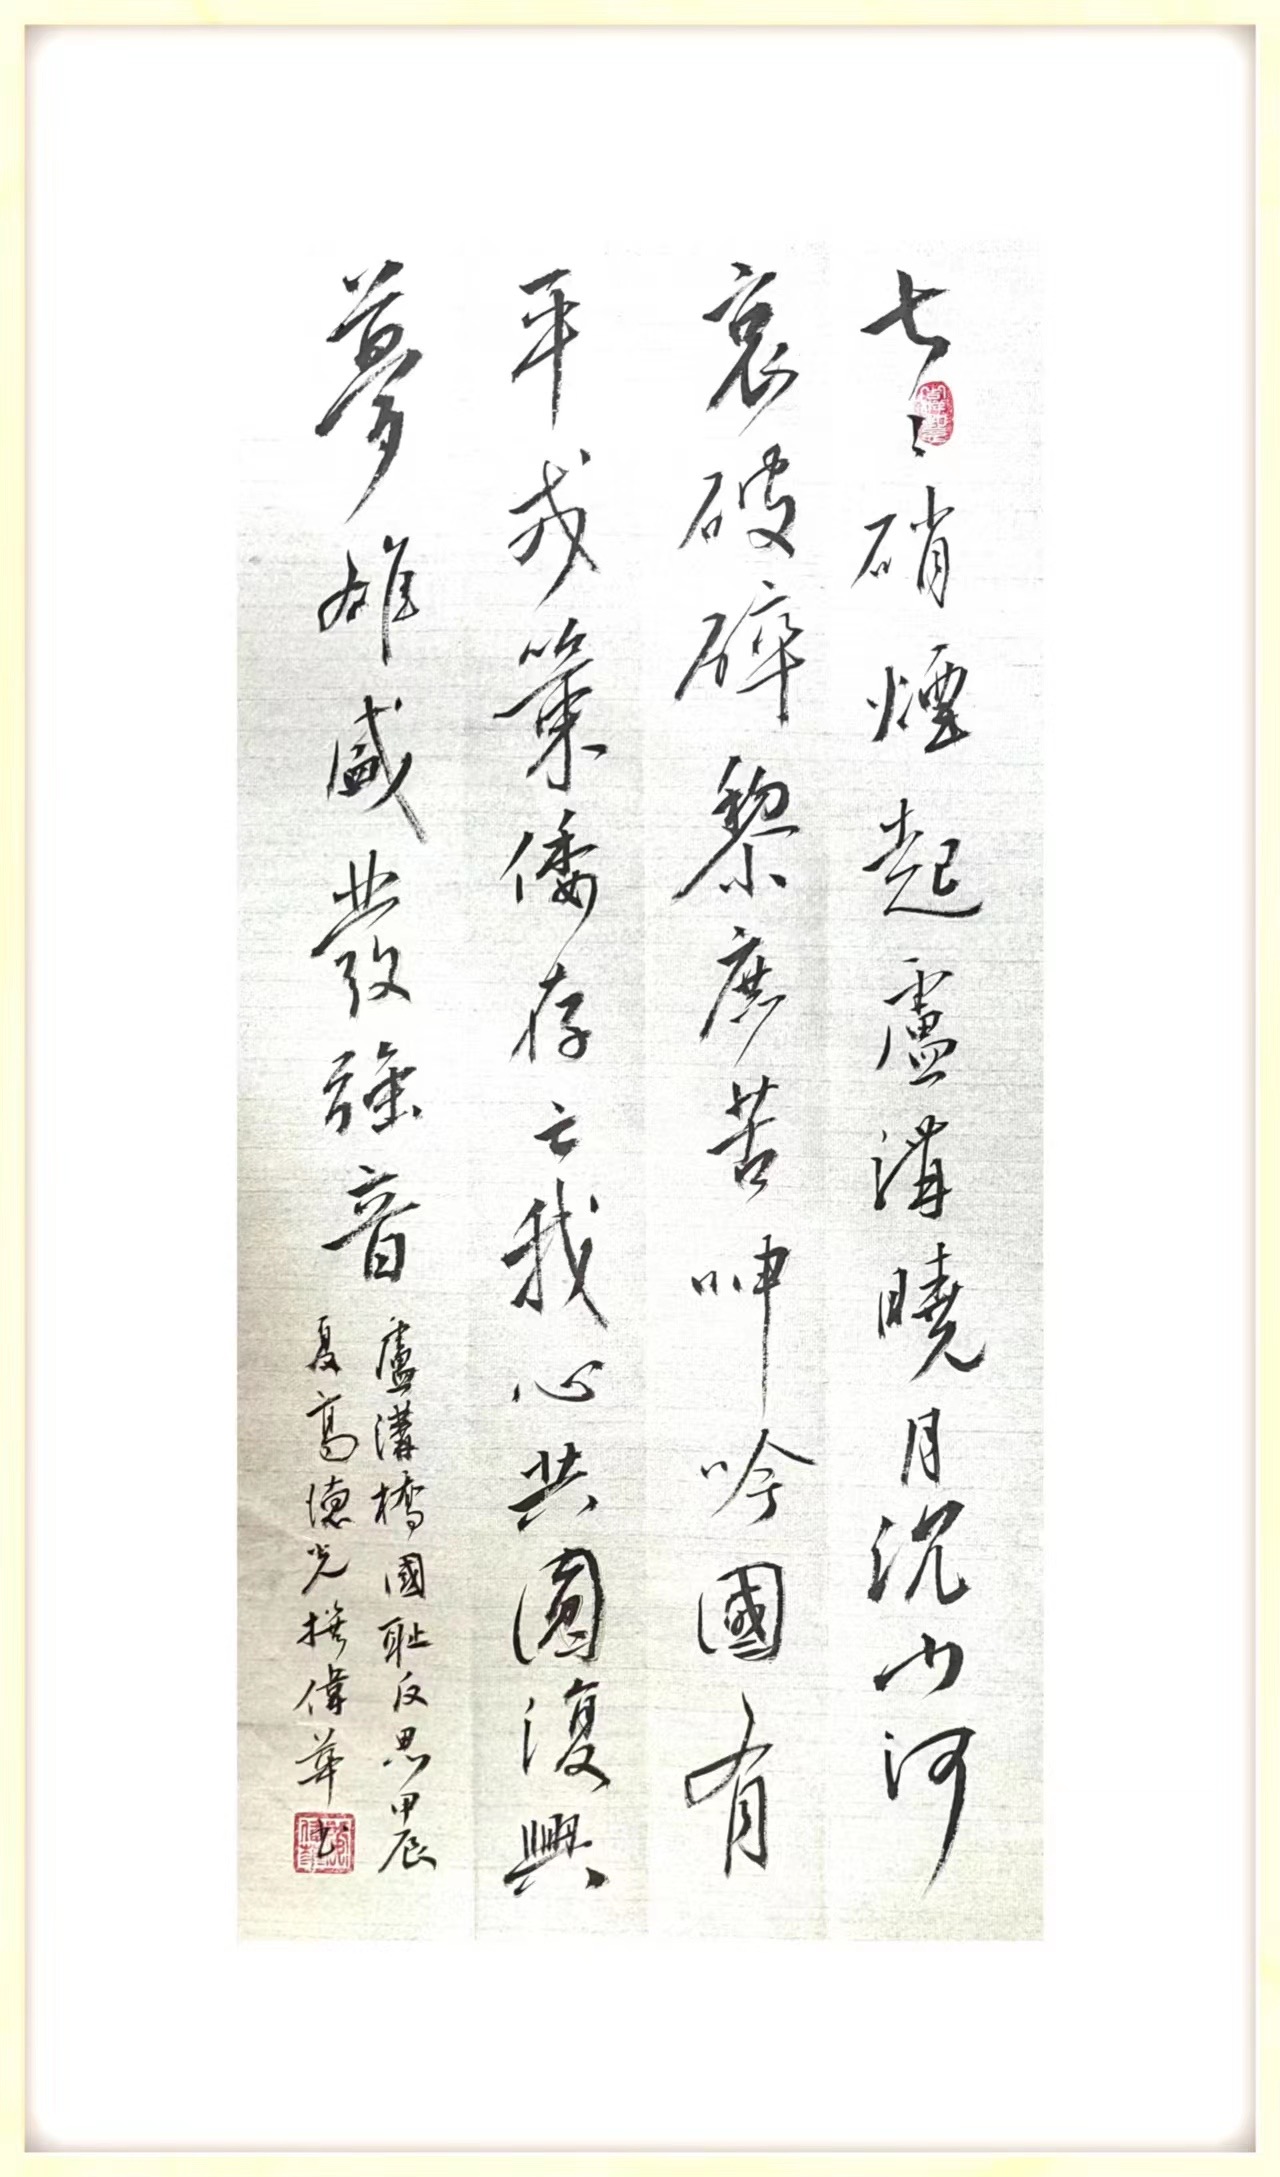 七〻硝煙起盧溝曉月沉山河
哀破碎黎庶苦呻吟國有
平戎策倭存亡我心共圓復興
夢雄盛發強音
盧溝橋國耻反思甲辰
夏高德光撰偉華書